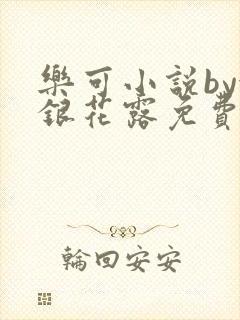 樂可小説by
銀花露免費
輪回安安